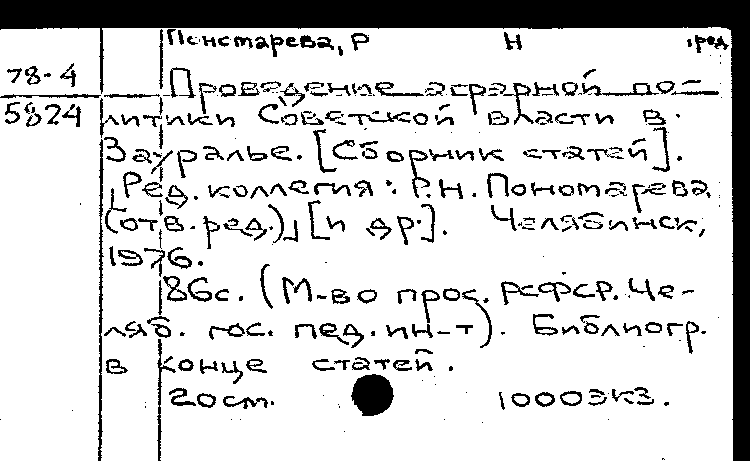 Понстарева, Р Н , ред
78-4 Проведение аграрной по-
5824 литики Советской власти в
Зауралье. [Сборник статей].
,Ред. коллегия: Р.Н. Пономарева
(отв. ред.), [и др.]. Челябинск,
1976.
86с. (М-во прос. РСФСР. Че-
ляб. гос. пед. ин-т). Библиогр.
в конце статей.
20см. 1000экз.